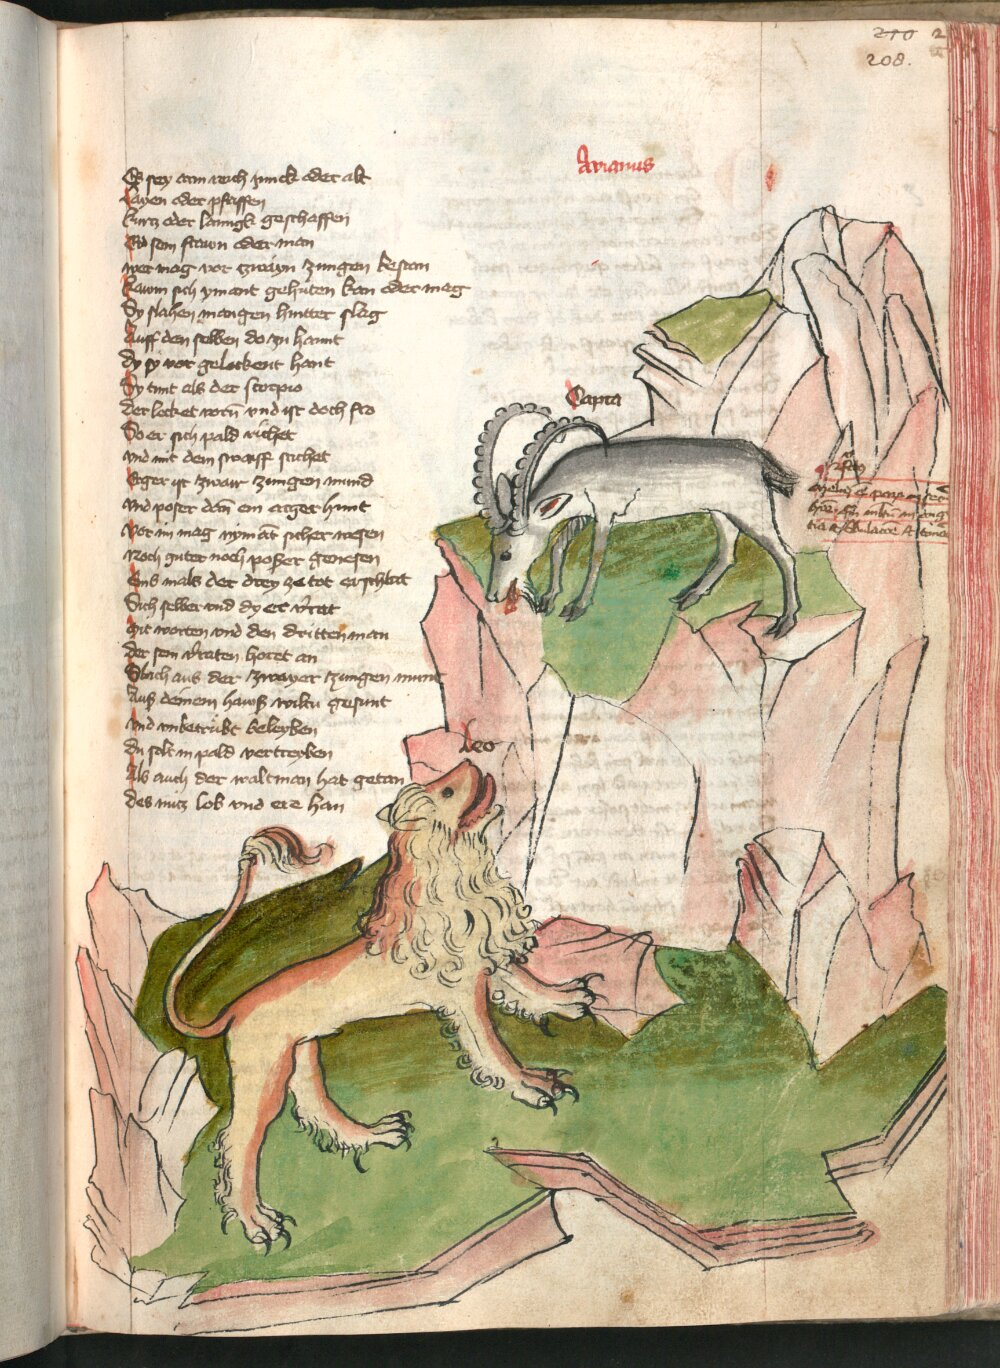 210 2
208.
Avianus
Es sey arm reich junck oder alt
Layen oder pfaffen
kurcz oder lanngk geschaffen
Es sein frawn oder man
wer mag vor zwayn zungen bestan
kawm sich ymant gehuten kan oder mag
Dy slahen mangen hintter slag
Auff den selben do zu hannt
Dy sy vor gelockent hant
Sy tunt als der scorpio
Der locket vorn vnd ist doch fro
So er sich pald richet
Vnd mit dem swaiff stichet
Erger ist zwair zungen mund
Vnd poser dann ein arger hunt
Vor im mag nymant sicher wesen
Noch guter noch poßer genesen
Eins mals der drey ze tot erschlat
Sich selber vnd dy er verrat
Mit worten vnd den dritten man
der sein verraten horet an
Slach aus der zwayer zungen mund
Auß deinem hawß wiltu gesunt
Vnd vnbetrubt beleyben
Du solt in pald vertreyben
Als auch der waltman hat getan
des muz lob vnd ere han
Capra
Leo